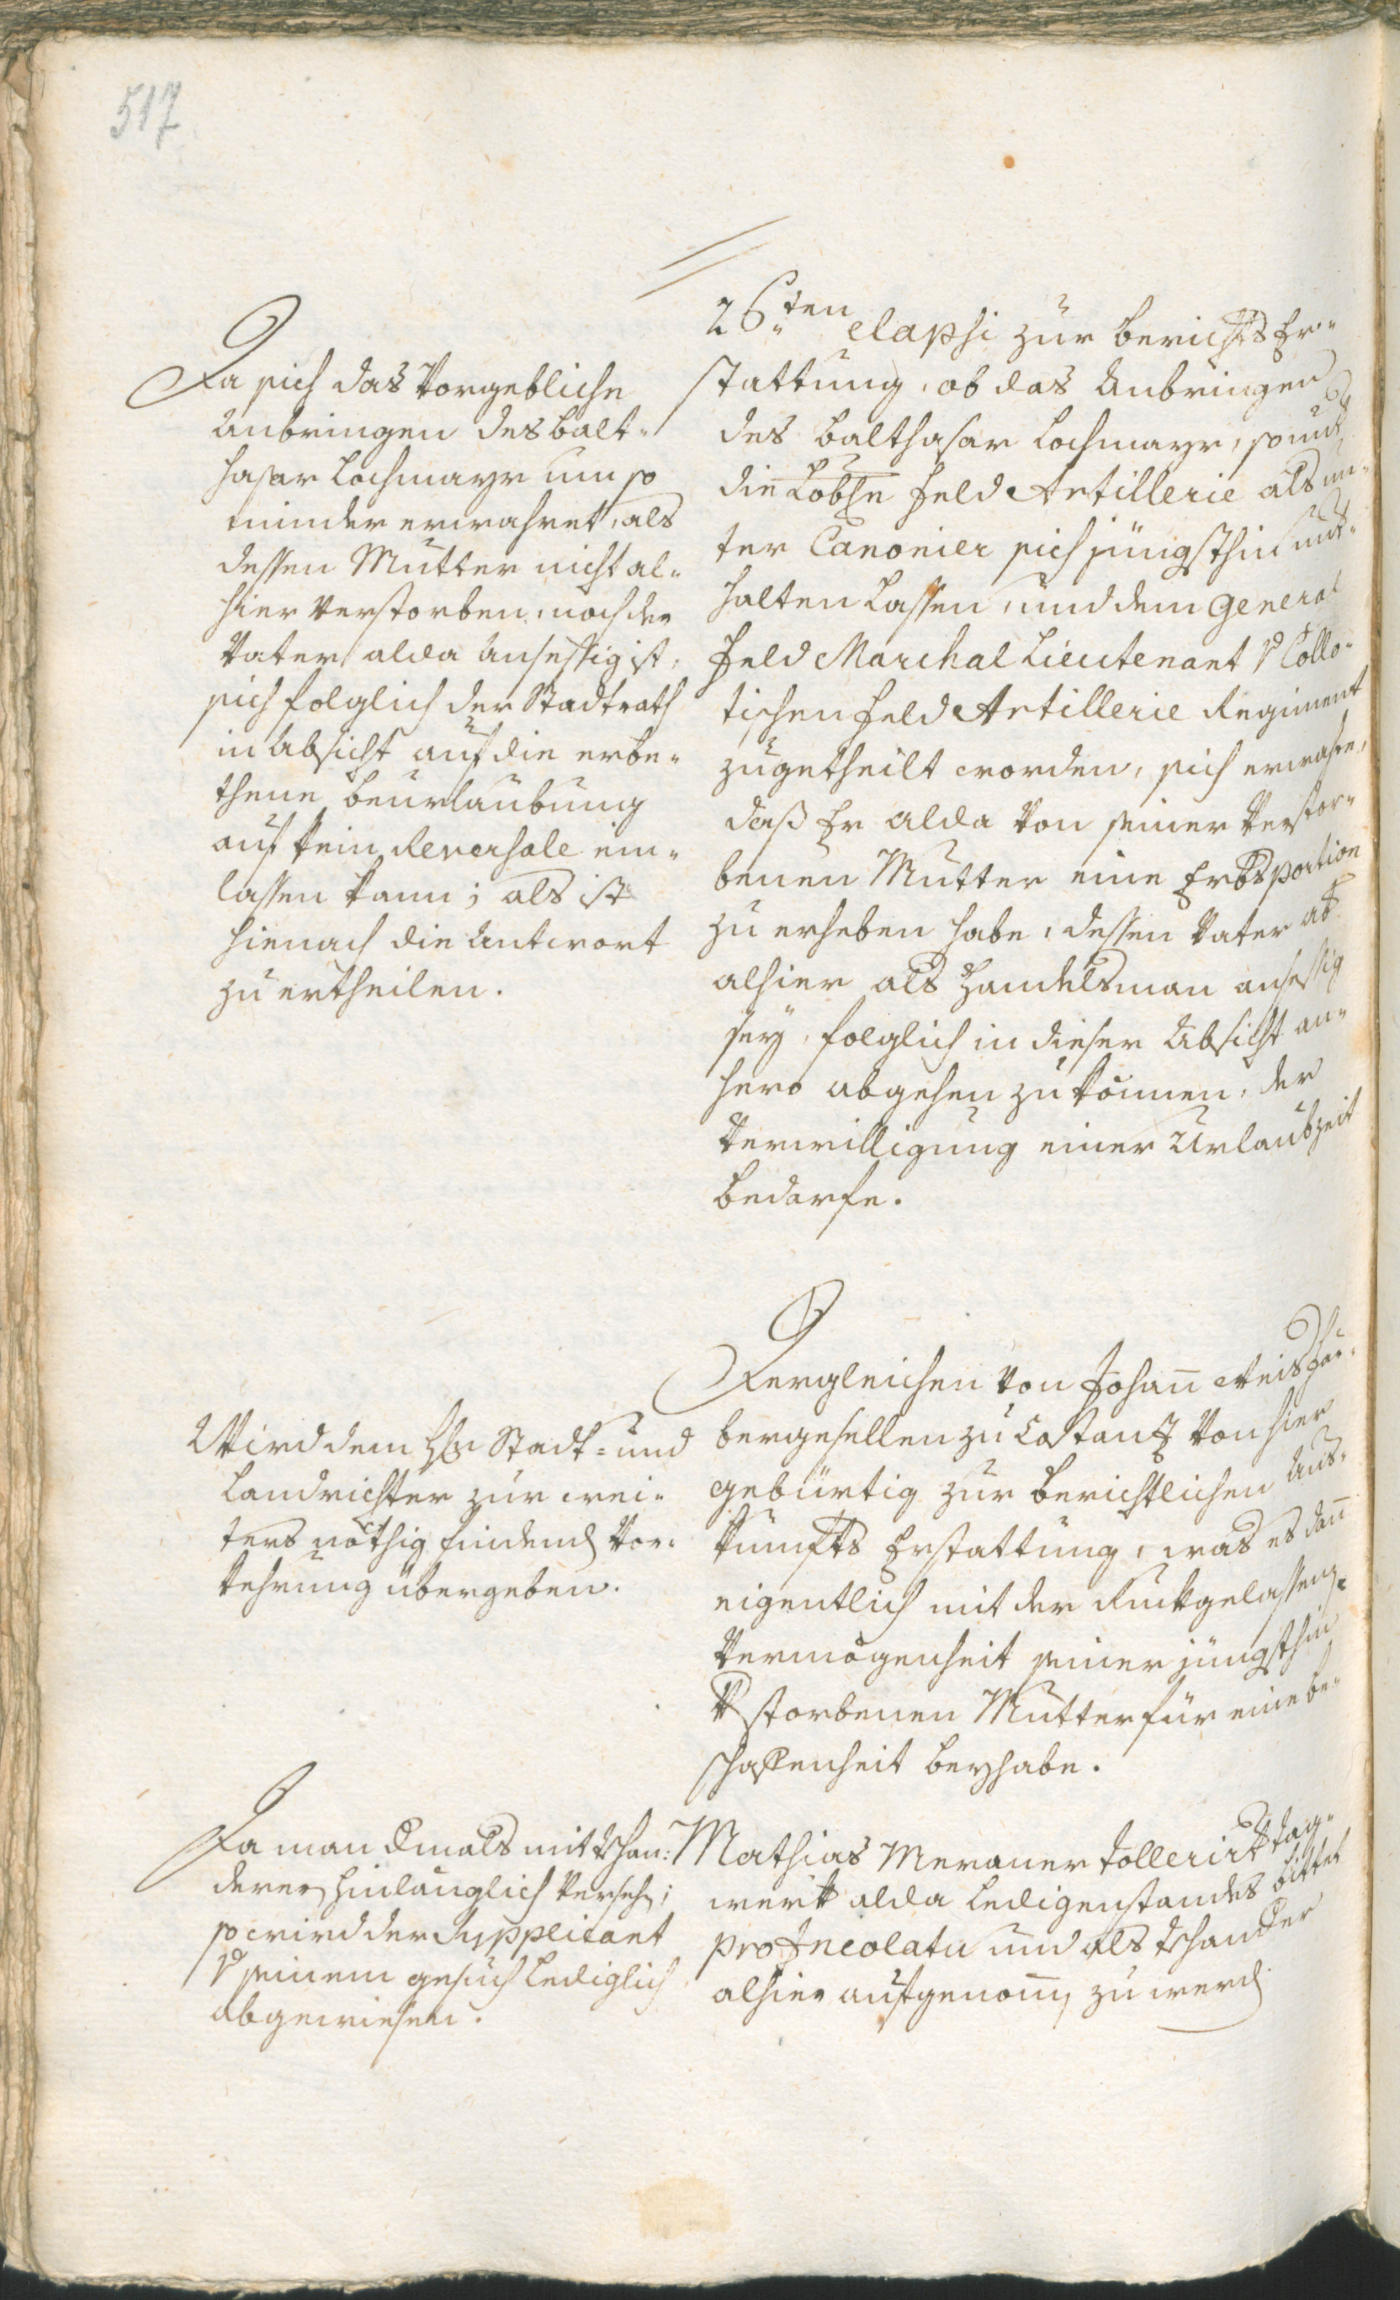 517
Da sich das Vorgebliche
Anbringen des Balt-
hasar Lochmayr um so
minder erwahret, als
dessen Mutter nicht al-
hier Verstorben, noch der
Vater alda Ansessig ist,
sich folglich der Stadtrath
in Absicht auf die erbe-
thene Beurlaubung
auf kein Reversale ein-
lassen kann; als ist
hienach die Antwort
zu ertheilen.
26.ten elapsi zur berichts Er-
stattung, ob das Anbringen
des Balthasar Lochmayr, so unter
die Löbl. Feld Artillerie als un-
ter Canonier sich jüngsthin unter-
halten Lassen, und dem General
Feld Marchal Lieutenant v Collo-
tischen Feld Artillerie Regiment
zugetheilt worden, sich erwahre,
daß Er alda Von seiner Verstor-
benen Mutter eine Erbsportion
zu erheben habe, dessen Vater ab
alhier als Handelsman ansessig
sey, folglich in dieser Absicht an-
hero abgehen zu können, der
Verwilligung einer Urlaubzeit
bedarfe.
Wird dem Hn Stadt- und
Landrichter zur wei-
ters nöthig findend Vor-
kehrung übergeben.
Dergleichen Von Johan̄ Weis
bergesellen zu Costantz Von hier
gebürtig zur berichtlichen Aus-
kunfts Erstattung, was es dan̄
eigentlich mit der Ruckgelassenen
Vermögenheit seiner jüngsthin
Vstorbenen Mutter für eine be-
schaffenheit beyhabe.
Da man dmals mit
derer hinlänglich Versehen;
so wird der Supplicant
v seinem gesuch Lediglich
abgewiesen.
Mathias Meraner Tollerirt Tag-
werk alda Ledigenstandes bittet
pro Incolatu und als
alhier aufgenom̄en zu werden